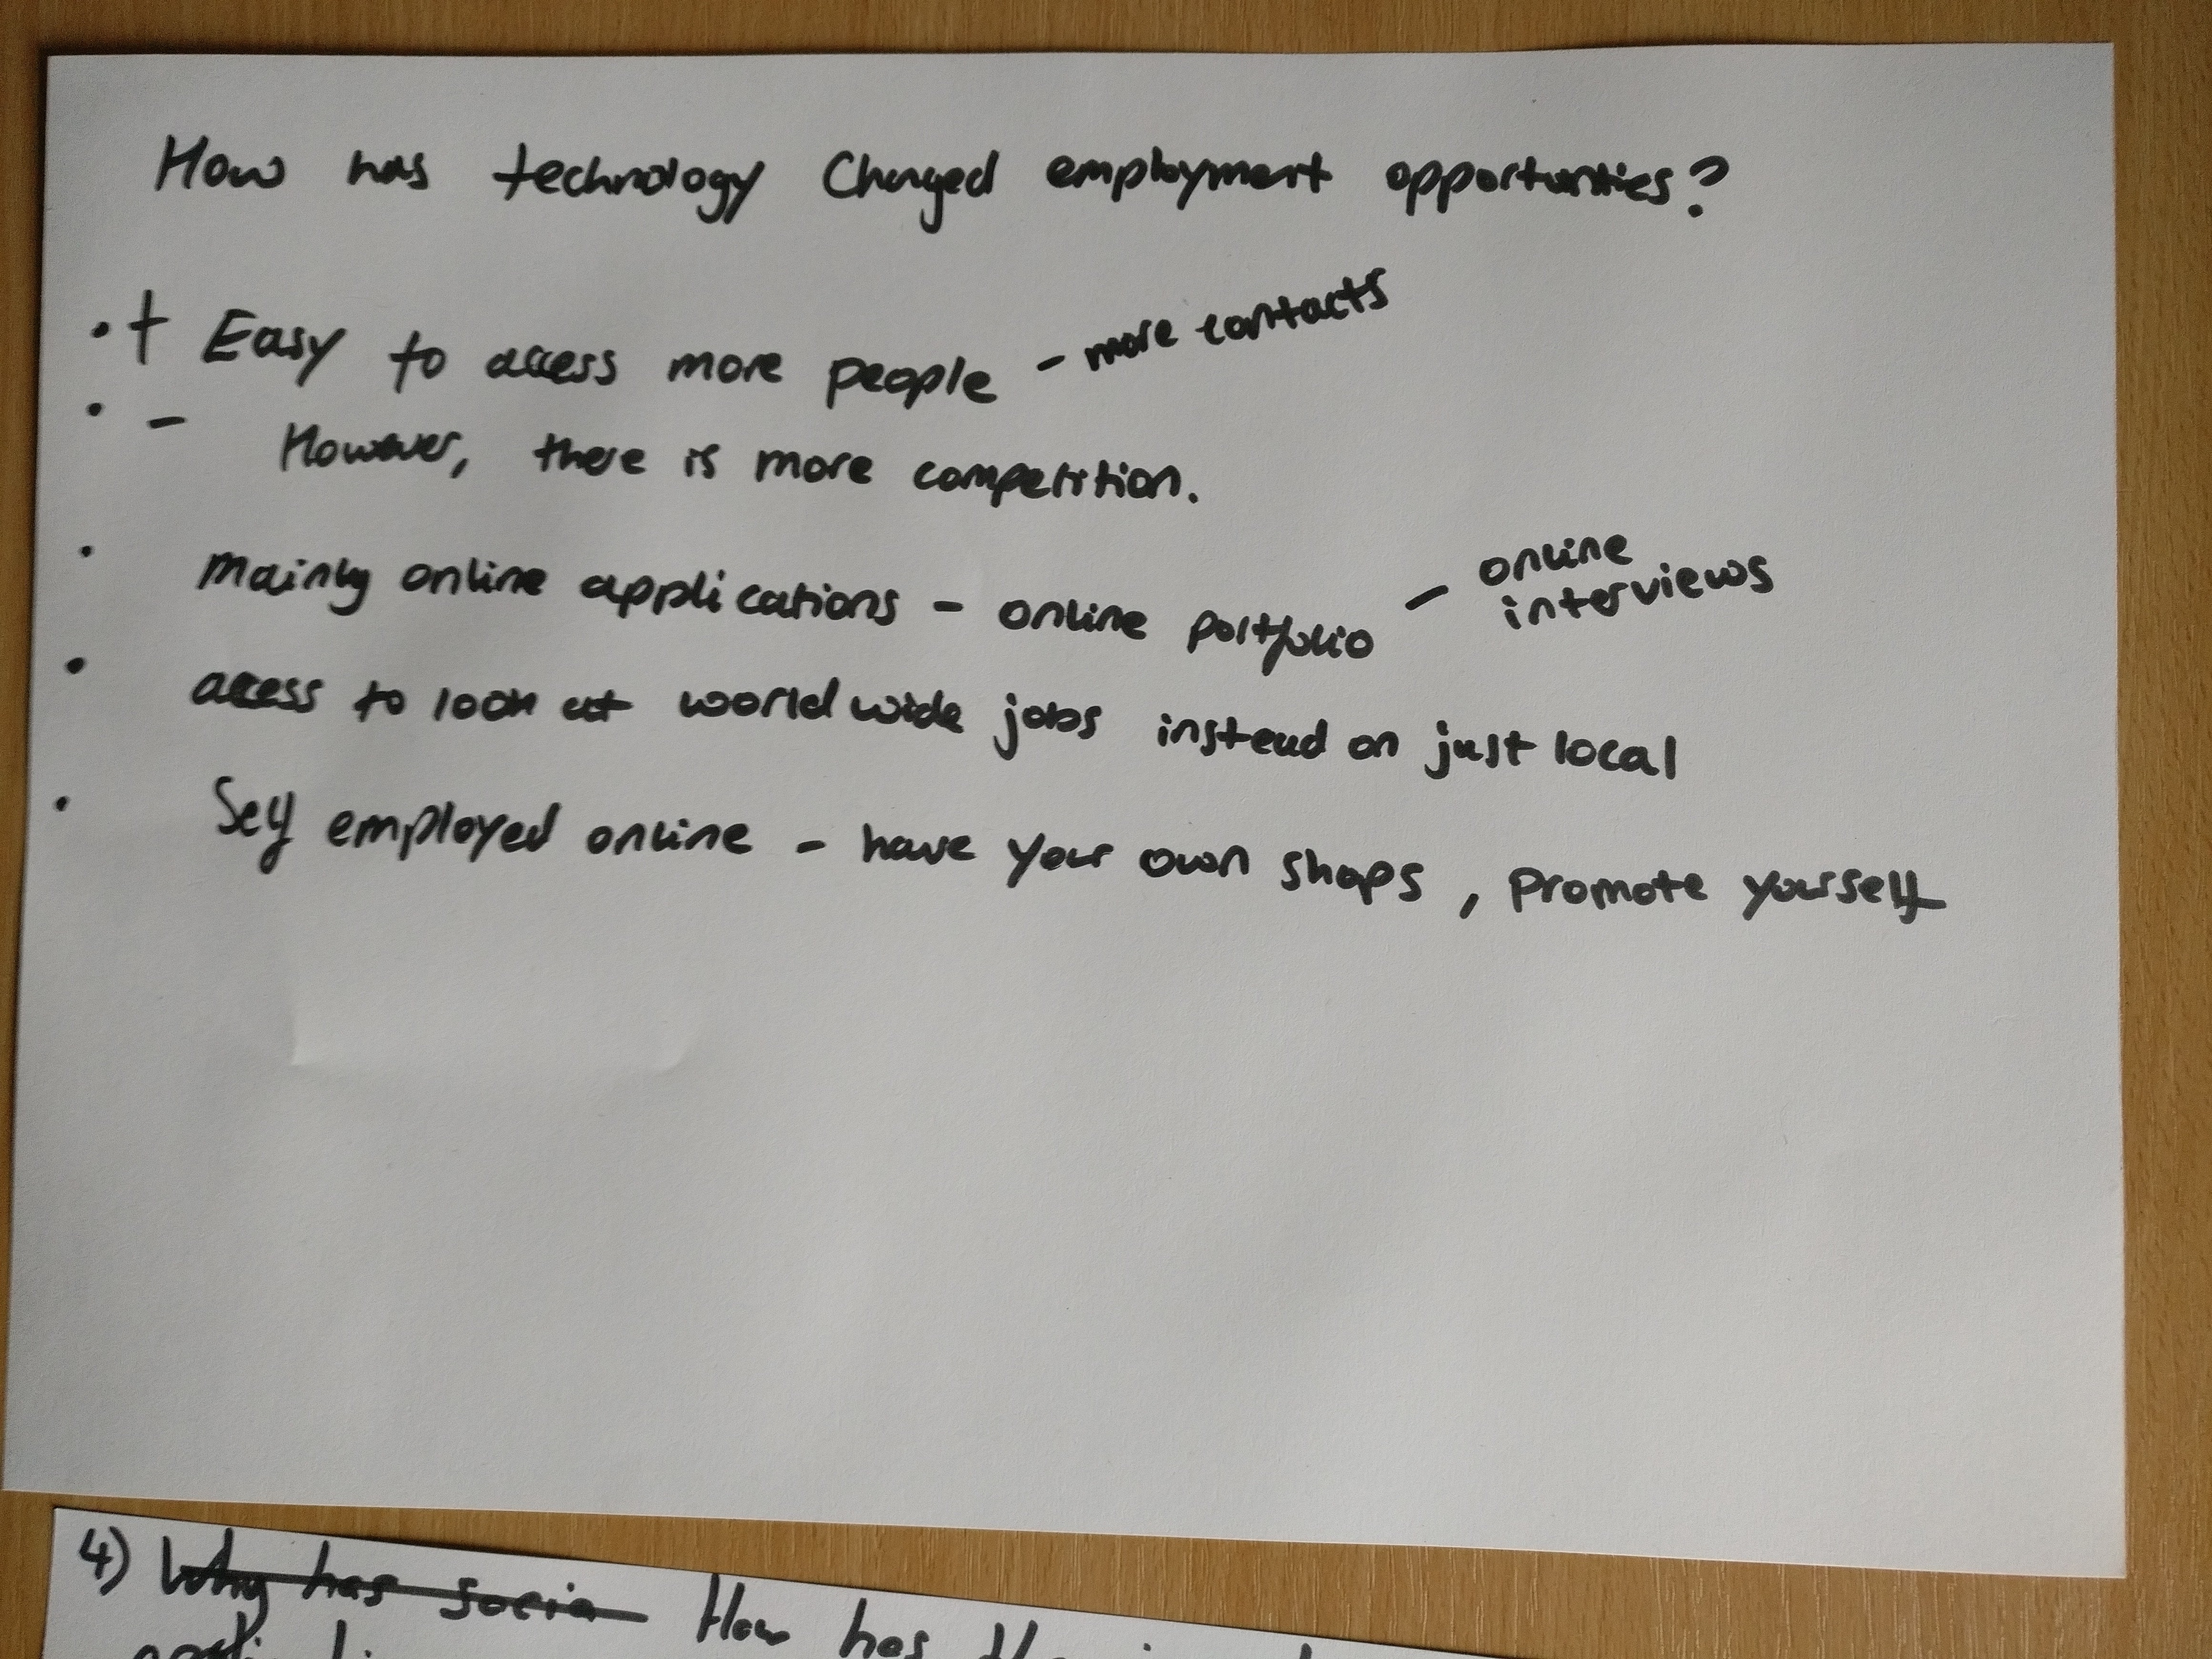 How has technology Changed employment opportunities?
• + Easy to access more people - more contacts
• - However, there is more competition.
• Mainly online applications - online portfolio - online interviews
• access to look at world wide jobs instead on just local
• Self employed online - have your own shops, promote yourself
4) Why has socia How has